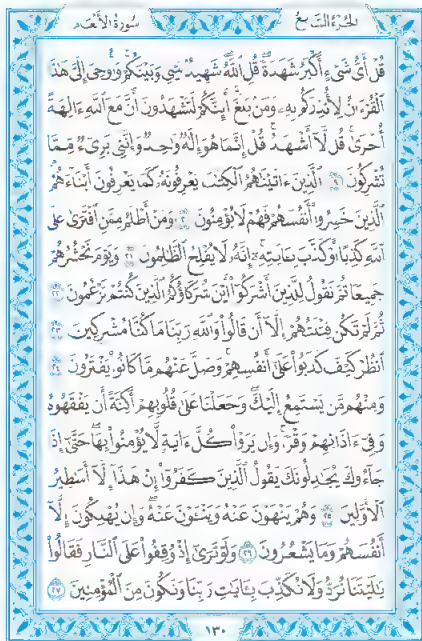 الجزء السابع سورة الأنعام
قُلْ أَىُّ شَىْءٍ أَكْبَرُ شَهَٰدَةً قُلِ ٱللَّهُ شَهِيدٌۢ بَيْنِى وَبَيْنَكُمْ وَأُوحِىَ إِلَىَّ هَٰذَا
ٱلْقُرْءَانُ لِأُنذِرَكُم بِهِۦ وَمَنۢ بَلَغَ أَئِنَّكُمْ لَتَشْهَدُونَ أَنَّ مَعَ ٱللَّهِ ءَالِهَةً
أُخْرَىٰ قُل لَّآ أَشْهَدُ قُلْ إِنَّمَا هُوَ إِلَٰهٌ وَٰحِدٌ وَإِنَّنِى بَرِىٓءٌ مِّمَّا
تُشْرِكُونَ ١٩ ٱلَّذِينَ ءَاتَيْنَٰهُمُ ٱلْكِتَٰبَ يَعْرِفُونَهُۥ كَمَا يَعْرِفُونَ أَبْنَآءَهُمُ
ٱلَّذِينَ خَسِرُوٓا۟ أَنفُسَهُمْ فَهُمْ لَا يُؤْمِنُونَ ٢٠ وَمَنْ أَظْلَمُ مِمَّنِ ٱفْتَرَىٰ عَلَى
ٱللَّهِ كَذِبًا أَوْ كَذَّبَ بِـَٔايَٰتِهِۦٓ إِنَّهُۥ لَا يُفْلِحُ ٱلظَّٰلِمُونَ ٢١ وَيَوْمَ نَحْشُرُهُمْ
جَمِيعًا ثُمَّ نَقُولُ لِلَّذِينَ أَشْرَكُوٓا۟ أَيْنَ شُرَكَآؤُكُمُ ٱلَّذِينَ كُنتُمْ تَزْعُمُونَ ٢٢
ثُمَّ لَمْ تَكُن فِتْنَتُهُمْ إِلَّآ أَن قَالُوا۟ وَٱللَّهِ رَبِّنَا مَا كُنَّا مُشْرِكِينَ ٢٣
ٱنظُرْ كَيْفَ كَذَبُوا۟ عَلَىٰٓ أَنفُسِهِمْ وَضَلَّ عَنْهُم مَّا كَانُوا۟ يَفْتَرُونَ ٢٤
وَمِنْهُم مَّن يَسْتَمِعُ إِلَيْكَ وَجَعَلْنَا عَلَىٰ قُلُوبِهِمْ أَكِنَّةً أَن يَفْقَهُوهُ
وَفِىٓ ءَاذَانِهِمْ وَقْرًا وَإِن يَرَوْا۟ كُلَّ ءَايَةٍ لَّا يُؤْمِنُوا۟ بِهَا حَتَّىٰٓ إِذَا
جَآءُوكَ يُجَٰدِلُونَكَ يَقُولُ ٱلَّذِينَ كَفَرُوٓا۟ إِنْ هَٰذَآ إِلَّآ أَسَٰطِيرُ
ٱلْأَوَّلِينَ ٢٥ وَهُمْ يَنْهَوْنَ عَنْهُ وَيَنْـَٔوْنَ عَنْهُ وَإِن يُهْلِكُونَ إِلَّآ
أَنفُسَهُمْ وَمَا يَشْعُرُونَ ٢٦ وَلَوْ تَرَىٰٓ إِذْ وُقِفُوا۟ عَلَى ٱلنَّارِ فَقَالُوا۟
يَٰلَيْتَنَا نُرَدُّ وَلَا نُكَذِّبَ بِـَٔايَٰتِ رَبِّنَا وَنَكُونَ مِنَ ٱلْمُؤْمِنِينَ ٢٧
١٣٠